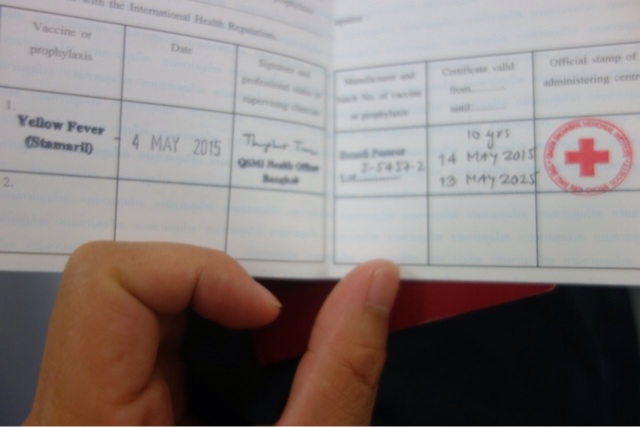 with the International Health Regulation.
Vaccine or
prophylaxis
Date
Signature and
professional status of
supervising clinician
Manufacturer and
batch No. of vaccine
or prophylaxis
Certificate valid
from
until
Official stamp of
administering
1.
Yellow Fever
(Stamaril)
4 MAY 2015
QSMI Health Officer
Bangkok
Lot
10 yrs
14 MAY 2015
13 MAY 2025
2.